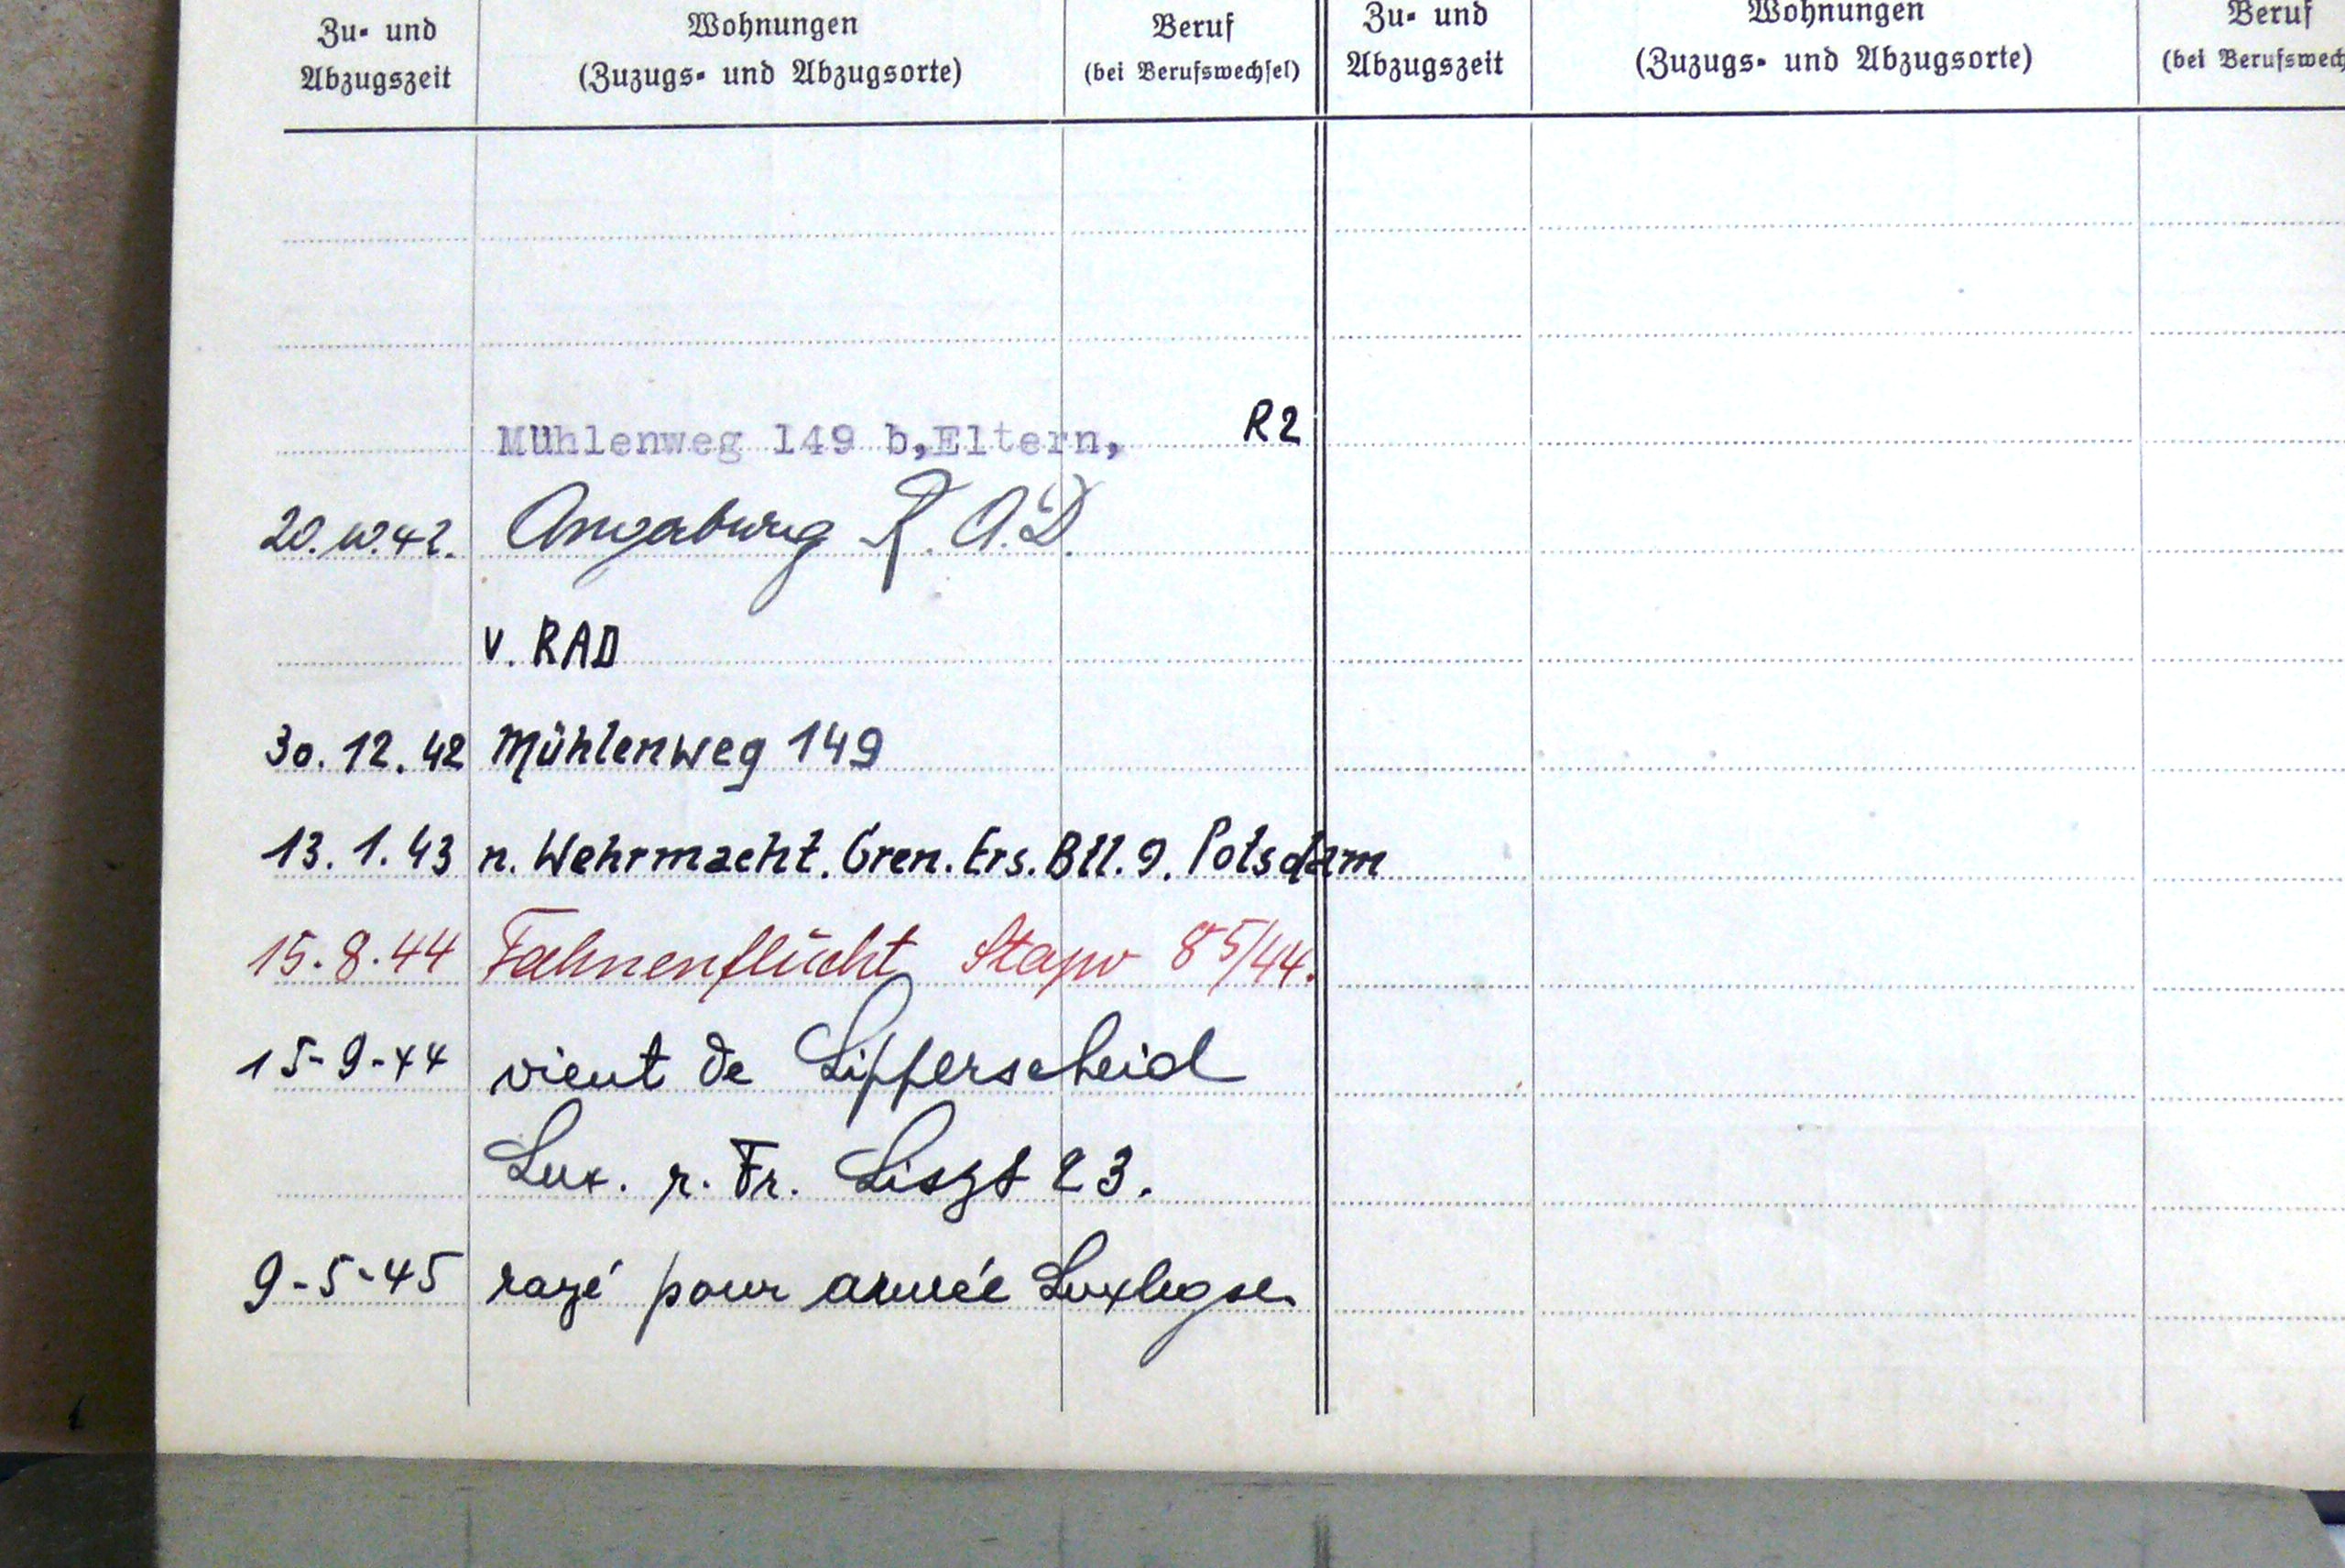 Zu- und Abzugszeit
Wohnungen
(Zuzugs- und Abzugsorte)
Beruf
(bei Berufswechsel)
Zu- und
Abzugszeit
Wohnungen
(Zuzugs- und Abzugsorte)
Beruf
(bei Berufswech
Mühlenweg 149 b,Eltern, R2
20.10.42. R.A.D.
v. RAD
30.12.42 Mühlenweg 149
13.1.43 n. Wehrmacht. Gren. Ers. Btl. 9. Potsdam
15.8.44 Fahnenflücht Stapo 85/44.
15-9-44 vient de Lipperscheid
Lux. r. Fr. Liszt 23.
9-5-45 rayé pour armée Luxbgse.